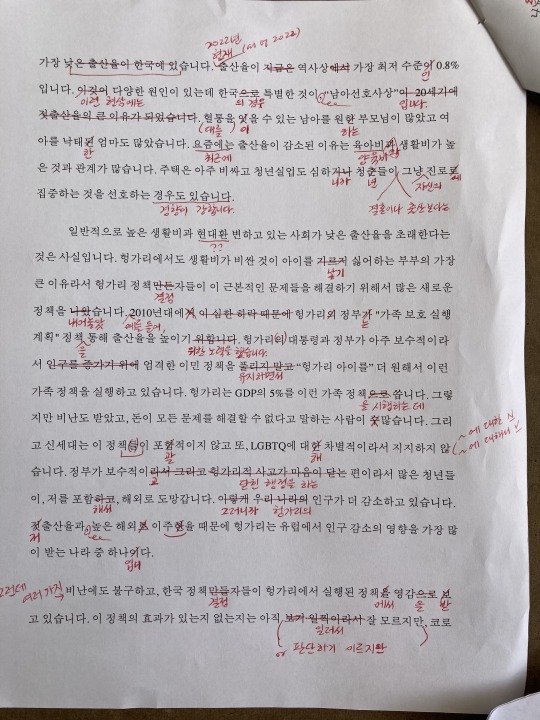 2022년
현재 (as of 2022)
가장 낮은 출산율이 한국에 있습니다. 출산율이 지금은 역사상에서 가장 최저 수준이 0.8%
인
입니다. 이것이 다양한 원인이 있는데 한국으로 특별한 것이 "남아선호사상"이 20세기에
이런 현상에는 의 경우 입니다.
젓출산율의 큰 이유가 되었습니다. 혈통을 잇을 수 있는 남아를 원한 부모님이 많았고 여
(대를) 이 하는
아를 낙태된 엄마도 많았습니다. 요즘에는 출산율이 감소된 이유는 육아비과 생활비가 높
한 최근에 양육비
은 것과 관계가 많습니다. 주택은 아주 비싸고 청년실업도 심하거나 청춘들이 그냥 진로로
니까 년 자신의
집중하는 것을 선호하는 경우도 있습니다.
경향이 강합니다. 결혼이나 출산보다는
일반적으로 높은 생활비과 현대환 변하고 있는 사회가 낮은 출산율을 초래한다는
??
것은 사실입니다. 헝가리에서도 생활비가 비싼 것이 아이를 기르지 싫어하는 부부의 가장
낳기
큰 이유라서 헝가리 정책 만든자들이 이 근본적인 문제들을 해결하기 위해서 많은 새로운
결정
정책을 나왔습니다. 2010년대에서 이 심한 하락 때문에 헝가리의 정부가 "가족 보호 실행
내어놓았 예를 들어, 는
계획" 정책 통해 출산율을 높이기 위합니다. 헝가리의 대통령과 정부가 아주 보수적이라
을 위한 노력을 했습니다.
서 인구를 증가기 위에 엄격한 이민 정책을 풀리지 말고 "헝가리 아이를" 더 원해서 이런
유지하면서
가족 정책을 실행하고 있습니다. 헝가리는 GDP의 5%를 이런 가족 정책으로 씁니다. 그렇
을 시행하는 데
지만 비난도 받았고, 돈이 모든 문제를 해결할 수 없다고 말하는 사람이 많습니다. 그리
고 신세대는 이 정책들이 포함적이지 않고 또, LGBTQ에 대한 차별적이라서 지지하지 않
괄 해
~에 대한 N
~에 대해서 V
습니다. 정부가 보수적이라서 그리고 헝가리적 사고가 마음이 닫는 편이라서 많은 청년들
고 닫힌 행정을 하는
이, 저를 포함하고, 해외로 도망갑니다. 이렇게 우리 나라의 인구가 더 감소하고 있습니다.
해서 그러니까 헝가리의
젓출산율과 높은 해외로 이주율 때문에 헝가리는 유럽에서 인구 감소의 영향을 가장 많
저
이 받는 나라 중 하나이다.
입니
그런데
여러가지 비난에도 불구하고, 한국 정책 만들자들이 헝가리에서 실행된 정책을 영감으로 보
결정 에서 을 받
고 있습니다. 이 정책의 효과가 있는지 없는지는 아직 보기 일찍이라서 잘 모르지만, 코로
일러서
or 판단하기 이르지만